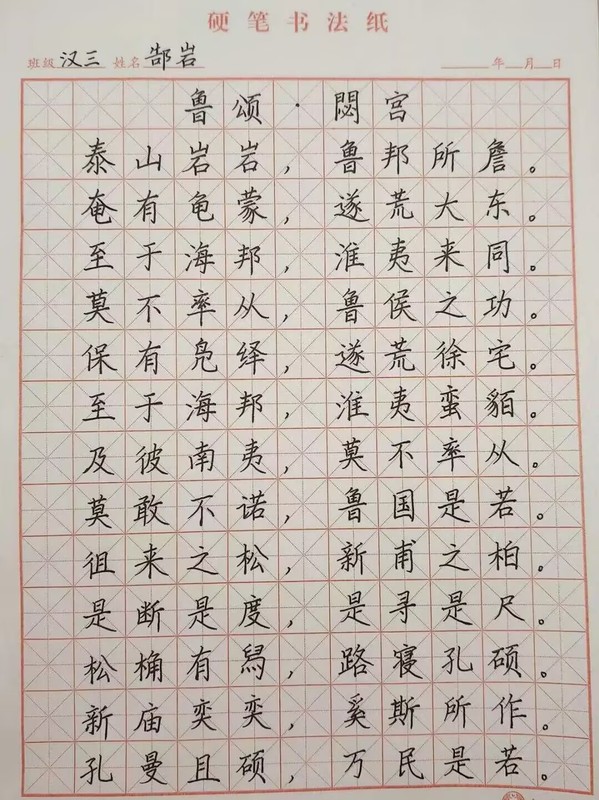 硬笔书法纸
班级 汉三 姓名 郜岩 年 月 日
鲁颂·閟宫
泰山岩岩，鲁邦所詹。
奄有龟蒙，遂荒大东。
至于海邦，淮夷来同。
莫不率从，鲁侯之功。
保有凫绎，遂荒徐宅。
至于海邦，淮夷蛮貊。
及彼南夷，莫不率从。
莫敢不诺，鲁国是若。
徂来之松，新甫之柏。
是断是度，是寻是尺。
松桷有舄，路寝孔硕。
新庙奕奕，奚斯所作。
孔曼且硕，万民是若。